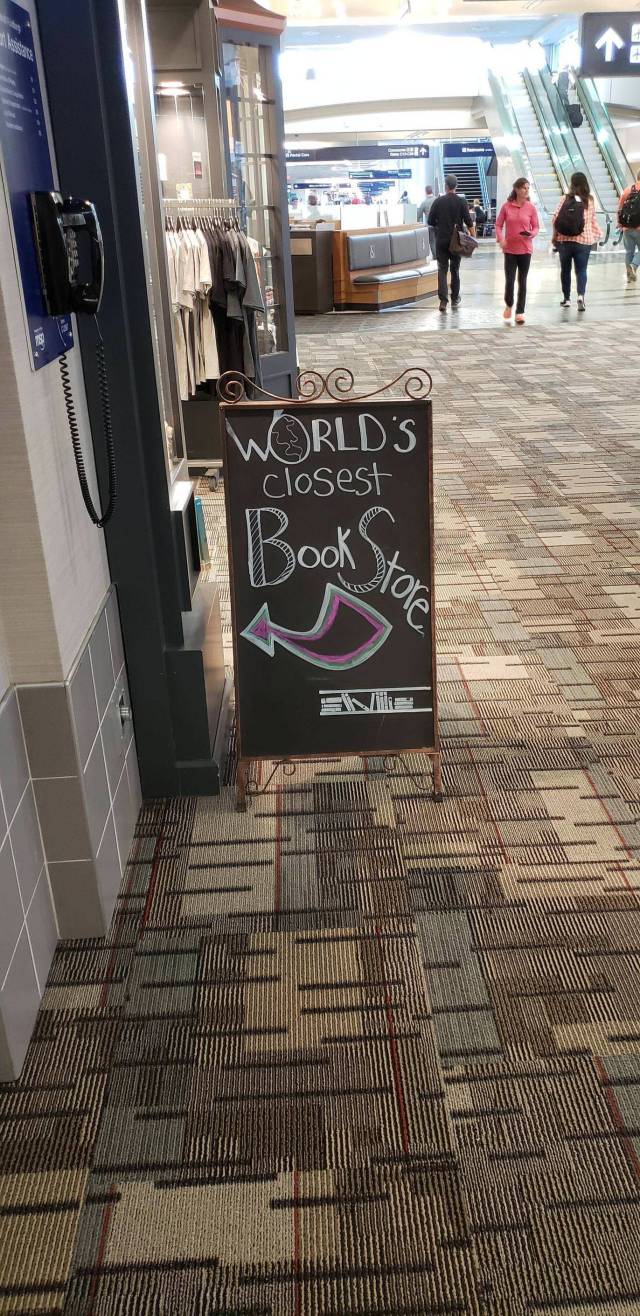 WORLD'S
closest
Book Store
Assistance
msp